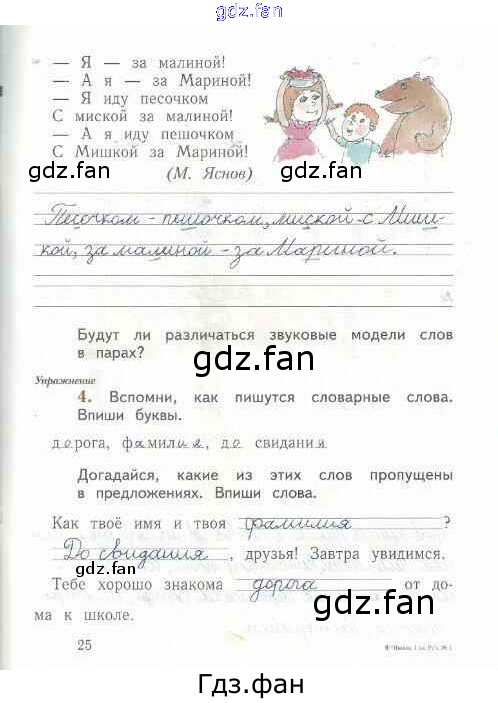 gdz.fan
— Я — за малиной!
— А я — за Мариной!
— Я иду песочком
С миской за малиной!
— А я иду пешочком
С Мишкой за Мариной!
gdz.fan
gdz.fan
(М. Яснов)
Песочком – пешочком, миской – с Миш-
кой, за малиной – за Мариной.
Будут ли различаться звуковые модели слов
в парах?
gdz.fan
Упражнение
4. Вспомни, как пишутся словарные слова.
Впиши буквы.
дорога, фамилия, до свидания
Догадайся, какие из этих слов пропущены
в предложениях. Впиши слова.
Как твоё имя и твоя фамилия ?
До свидания , друзья! Завтра увидимся.
gdz.fan
Тебе хорошо знакома дорога от до-
gdz.fan
ма к школе.
25
Гдз.фан